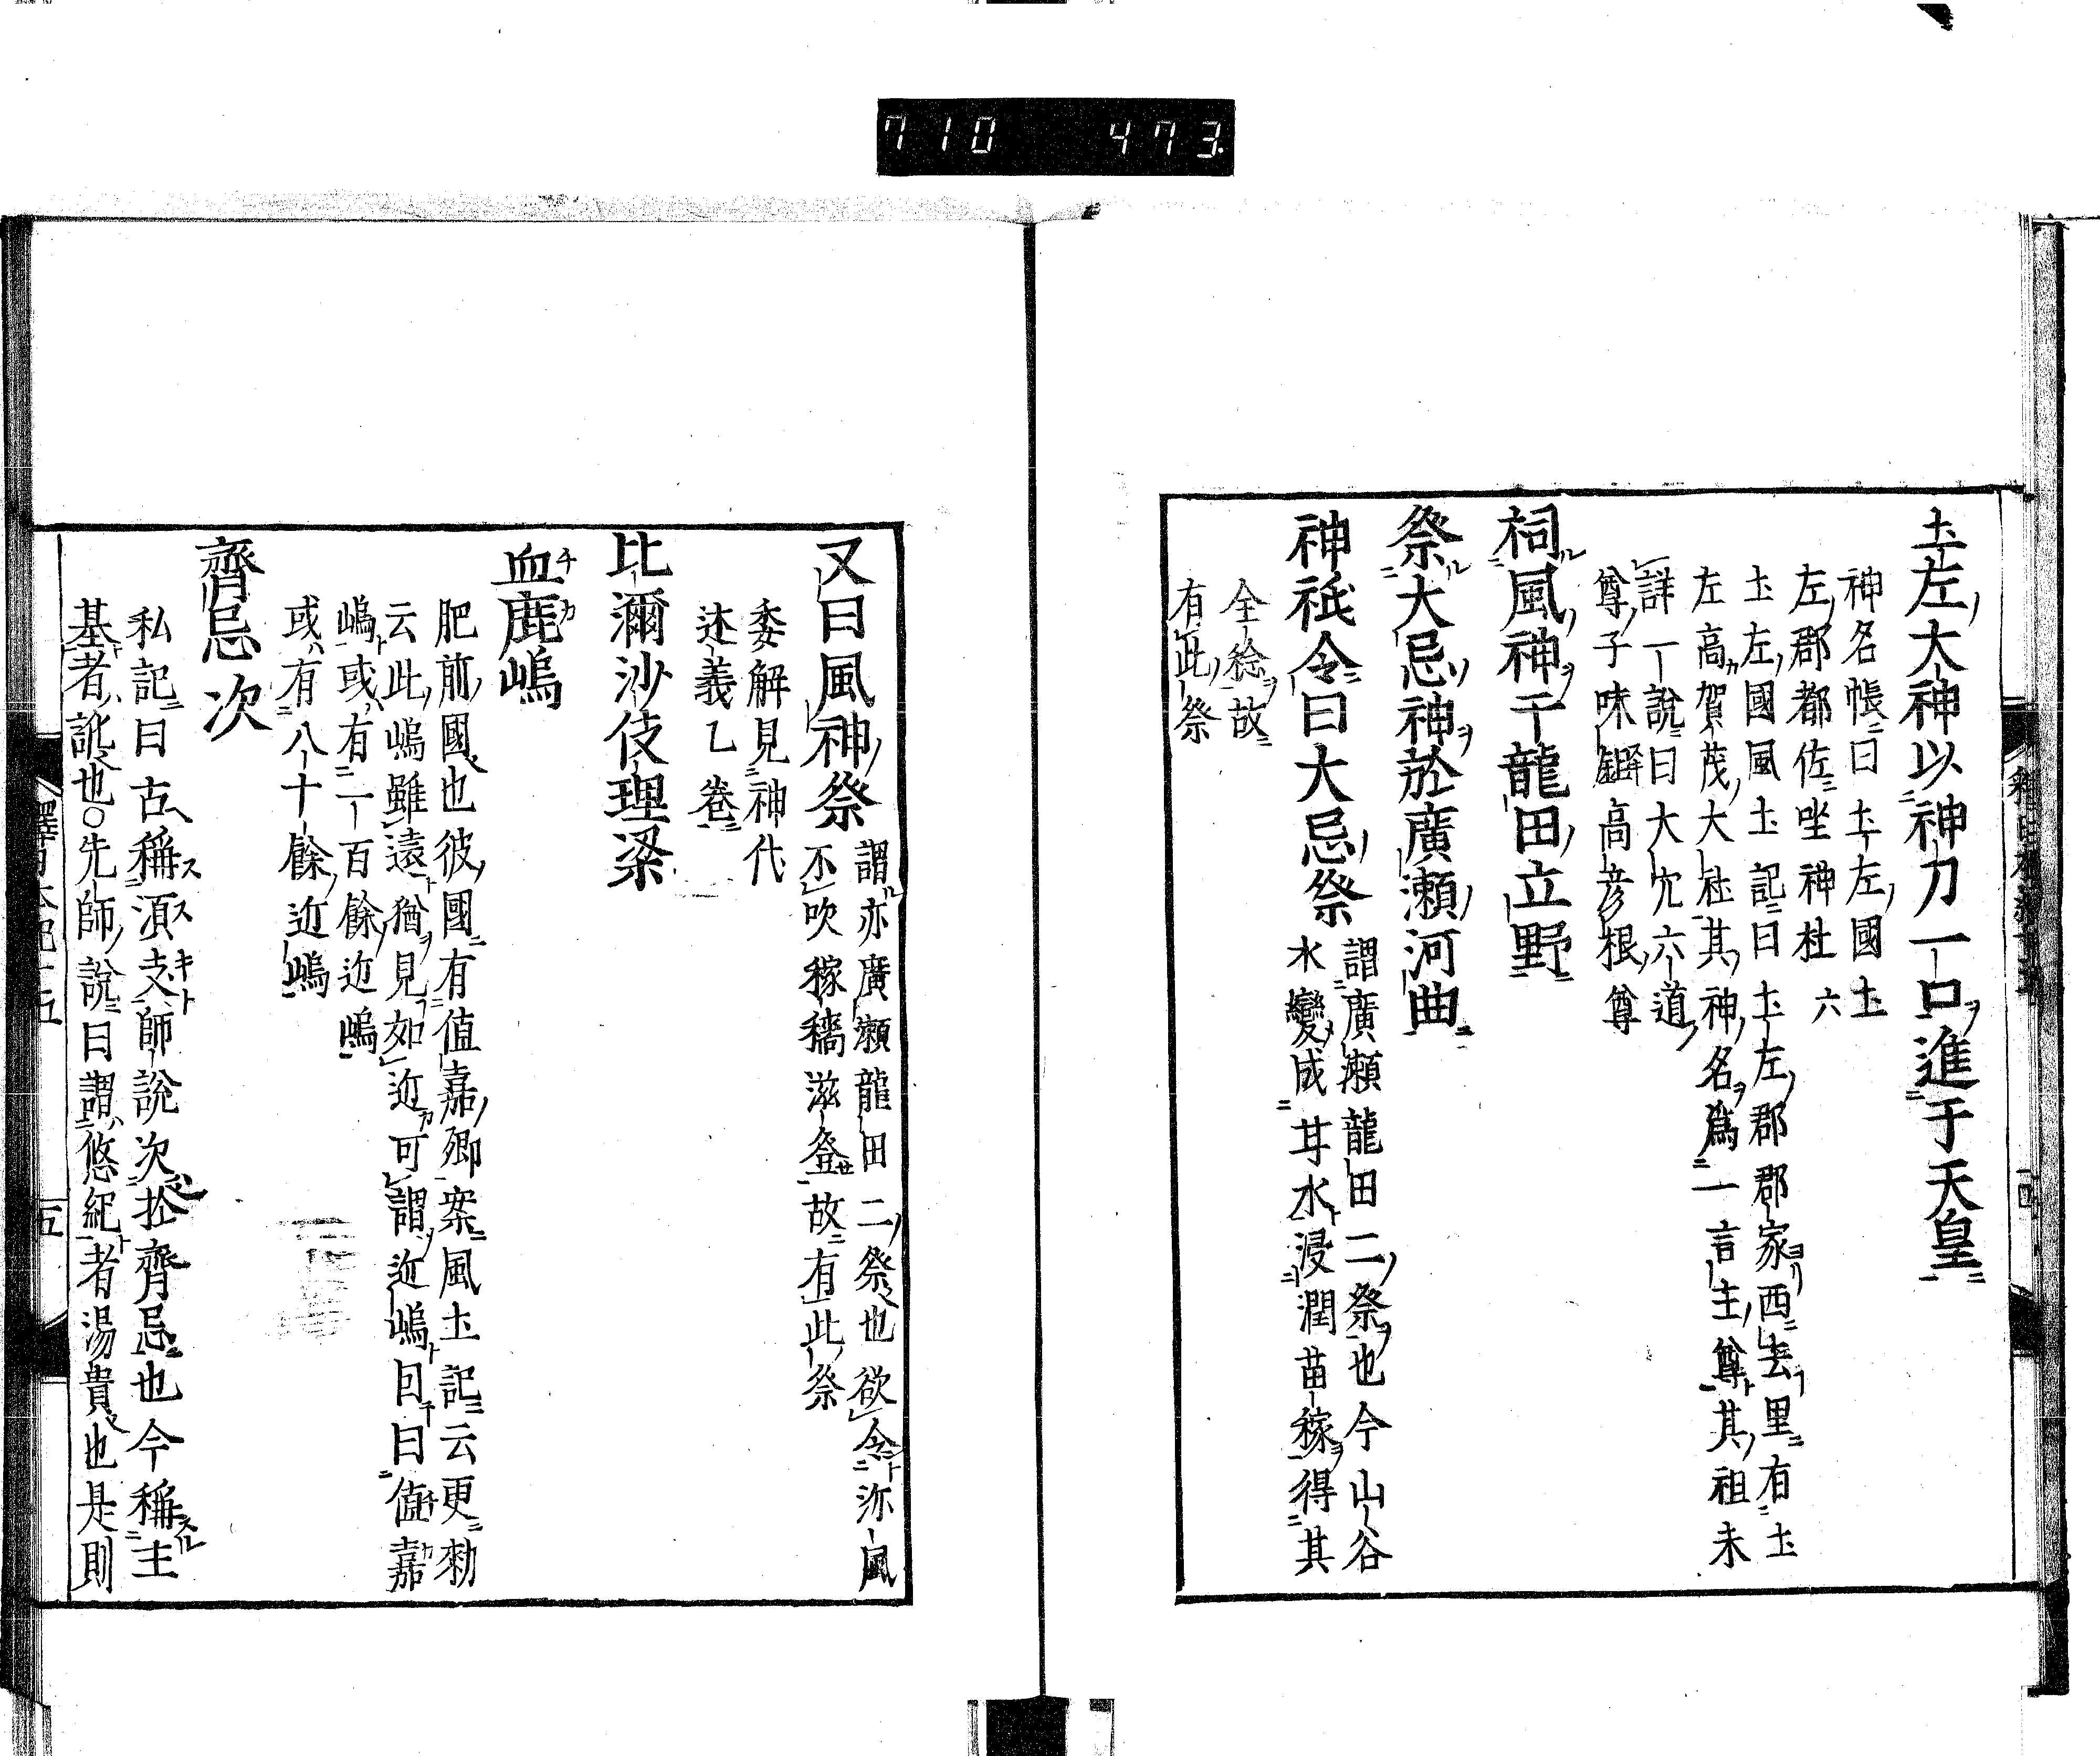 710 473.
土左大神以神刀一口進于天皇
神名帳曰土左國土
左郡都佐坐神社六
土左國風土記曰土左郡郡家西去里有土
左高賀茂大社其神名爲一言主尊其祖未
詳一說曰大穴六道
尊子味鋤高彦根尊
祠風神于龍田立野
祭大忌神於廣瀬河曲
神祇令曰大忌祭
謂廣瀬龍田二祭也今山谷
水變成甘水浸潤苗稼得其
全稔故
有此祭
又曰風神祭
謂亦廣瀬龍田二祭也欲令沴風
不吹稼穡滋登故有此祭
委解見神代
述義乙卷
比彌沙伎理梁
血鹿嶋
肥前國也彼國有値嘉郷案風土記云更勅
云此嶋雖遠猶見如近可謂近嶋因曰値嘉
嶋或有一百餘近嶋
或有八十餘近嶋
齊忌次
私記曰古稱湏支師說次於齊忌也今稱主
基者訛也○先師說曰謂悠紀者湯貴也是則
五